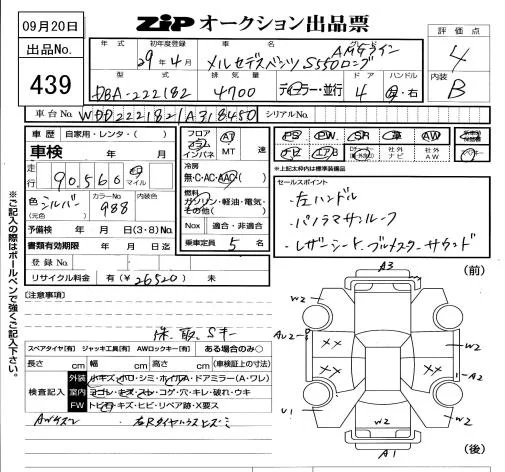 09月20日
ZiP オークション出品票
出品No.
439
年式
初年度登録
車名
グレード
評価点
29年4月
メルセデスベンツ S550ロング
AMGライン
4
型式
排気量
ドア
ハンドル
DBA-222182
4700
ディーラー・並行
4
・右
内装
B
車台No.
WDD2221821A318450
シリアルNo.
車歴
自家用・レンタ・( )
車検
年 月
走行
90,560
マイル
色
シルバー
(元色)
カラーNo.
988
内装色
予備検
年 月(3・8)No.
書類有効期限
年 月 日迄
登録No.
リサイクル料金
有(¥26520)
未
フロア
コラム
インパネ
AT
MT
速
冷房
無・C・AC・AAC
燃料
ガソリン・軽油・電気・
その他( )
Nox
適合・非適合
乗車定員
5
名
PS
PW
SR
革
AW
ナビ
AB
社外
ナビ
社外
AW
※上記太枠内は装備品です。
セールスポイント
・左ハンドル
・パノラマサンルーフ
・レザーシート、ブルメスターサウンド
※ご記入の際はボールペンで強くご記入下さい。
【注意事項】
床、取、Sキー
スペアタイヤ[有] ジャッキ工具[有] AWロックキー[有] ある場合のみ○
長さ cm 幅 cm 高さ cm (車検証上の寸法)
検査記入
外装
小キズ・ボロ・シミ・ホイルA・ドアミラー(A・ワレ)
室内
ヨゴレ・キズ・スレ・コゲ・穴・キレ・破れ・ウキ
FW
トビ石・キズ・ヒビ・リペア跡・X要ス
AWキズ
A3
(前)
W2
W2
XX
XX
W2
A2
U1
W2
W2
A1
(後)